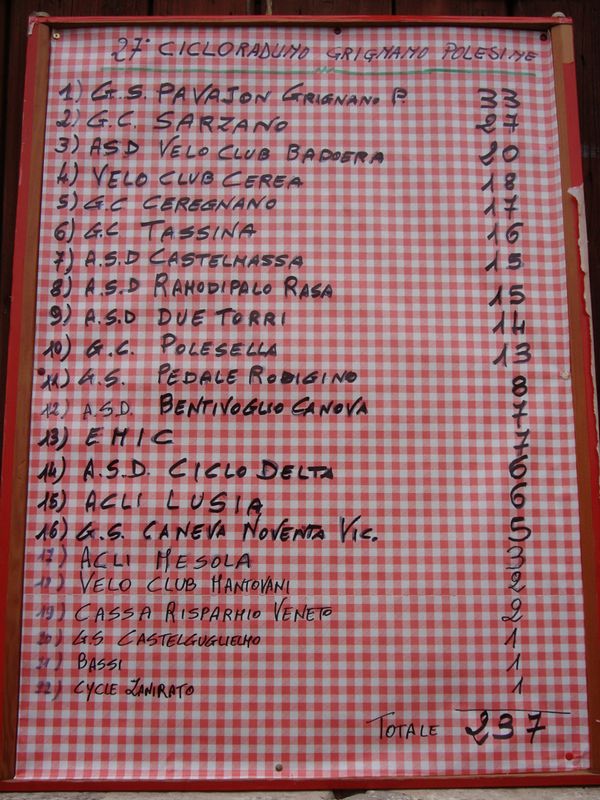 27° CICLORADUNO GRIGNANO POLESINE
1) G.S. PAVAJON GRIGNANO P. 33
2) G.C. SARZANO 27
3) ASD VELO CLUB BADOERA 20
4) VELO CLUB CEREA 18
5) G.C CEREGNANO 17
6) G.C TASSINA 16
7) A.S.D CASTELMASSA 15
8) A.S.D RAMODIPALO RASA 15
9) A.S.D DUE TORRI 14
10) G.C. POLESELLA 13
11) G.S. PEDALE RODIGINO 8
12) A.S.D. BENTIVOGLIO CANOVA 7
13) EMIC 7
14) A.S.D. CICLO DELTA 6
15) ACLI LUSIA 6
16) G.S. CANEVA NOVENTA VIC. 5
17) ACLI MESOLA 3
18) VELO CLUB MANTOVANI 2
19) CASSA RISPARMIO VENETO 2
20) GS CASTELGUGLIELMO 1
21) BASSI 1
22) CYCLE ZANIRATO 1
TOTALE 237